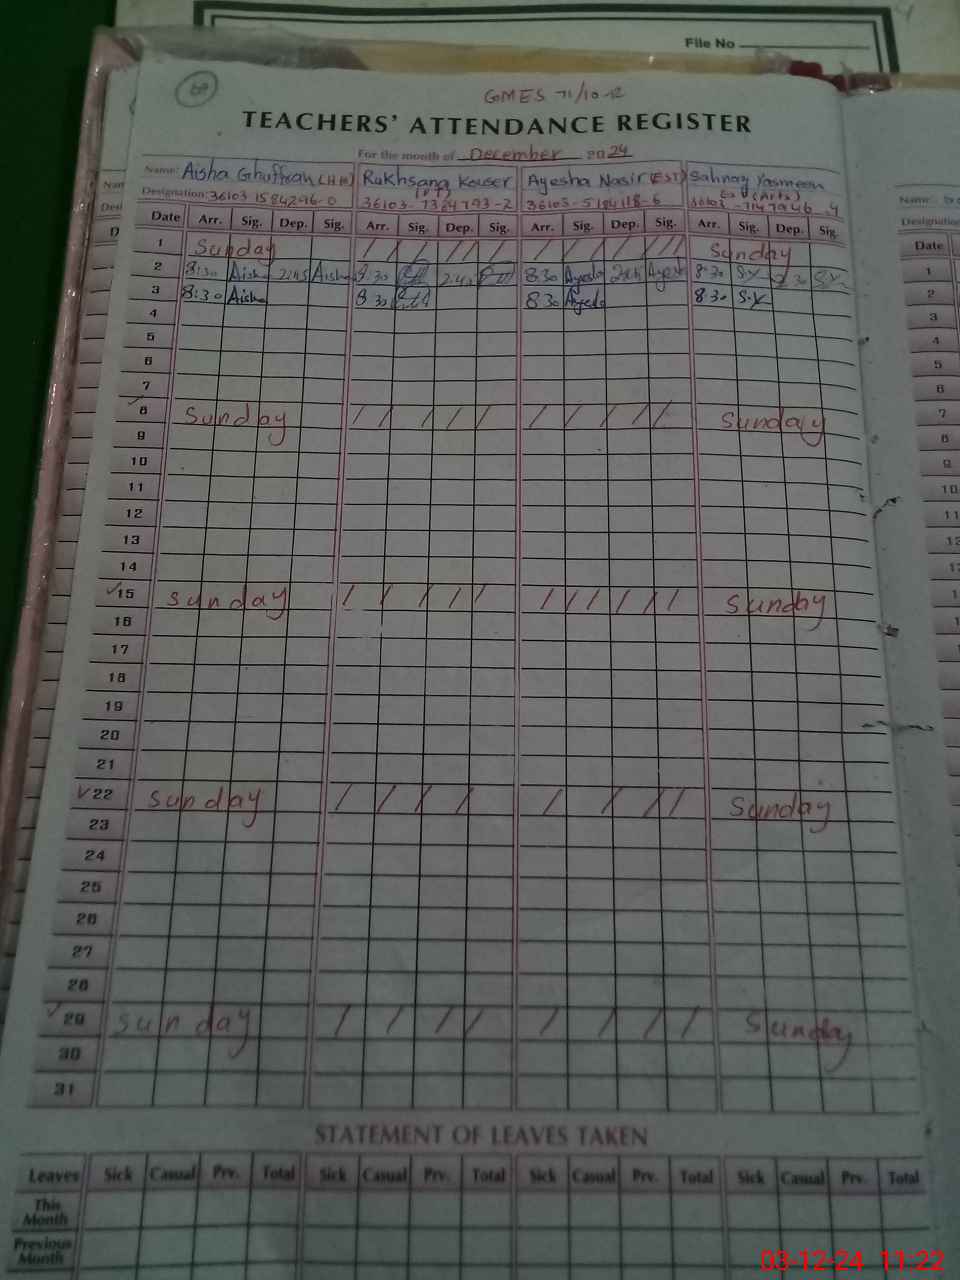 File No
69
GMES 71/10-R
TEACHERS' ATTENDANCE REGISTER
For the month of December 2024
Name: Aisha Ghuffran (HM) Rukhsana Kouser Ayesha Nasir (EST) Salmay Yasmeen
Designation: 36103 1584296-0 36103-7364793-2 36103-5184118-6 36103-7147946-4
Date Arr. Sig. Dep. Sig. Arr. Sig. Dep. Sig. Arr. Sig. Dep. Sig. Arr. Sig. Dep. Sig.
1 Sunday / / / / / / / / / / / Sunday
2 8:30 Aisha 2:45 Aisha 8.30 2:45 8.30 Ayesha 2:45 Ayesha 8.30 S.Y 2.30 S.Y
3 8:30 Aisha 8 30 8 30 Ayesha 8 30 S.Y
4
5
6
7
8 Sunday / / / / / / / / / / Sunday
9
10
11
12
13
14
15 Sunday / / / / / / / / / / / Sunday
16
17
18
19
20
21
22 Sunday / / / / / / / / Sunday
23
24
25
26
27
28
29 Sunday / / / / / / / / Sunday
30
31
STATEMENT OF LEAVES TAKEN
Leaves Sick Casual Prv. Total Sick Casual Prv. Total Sick Casual Prv. Total Sick Casual Prv. Total
This Month
Previous Month
03-12-24 11:22